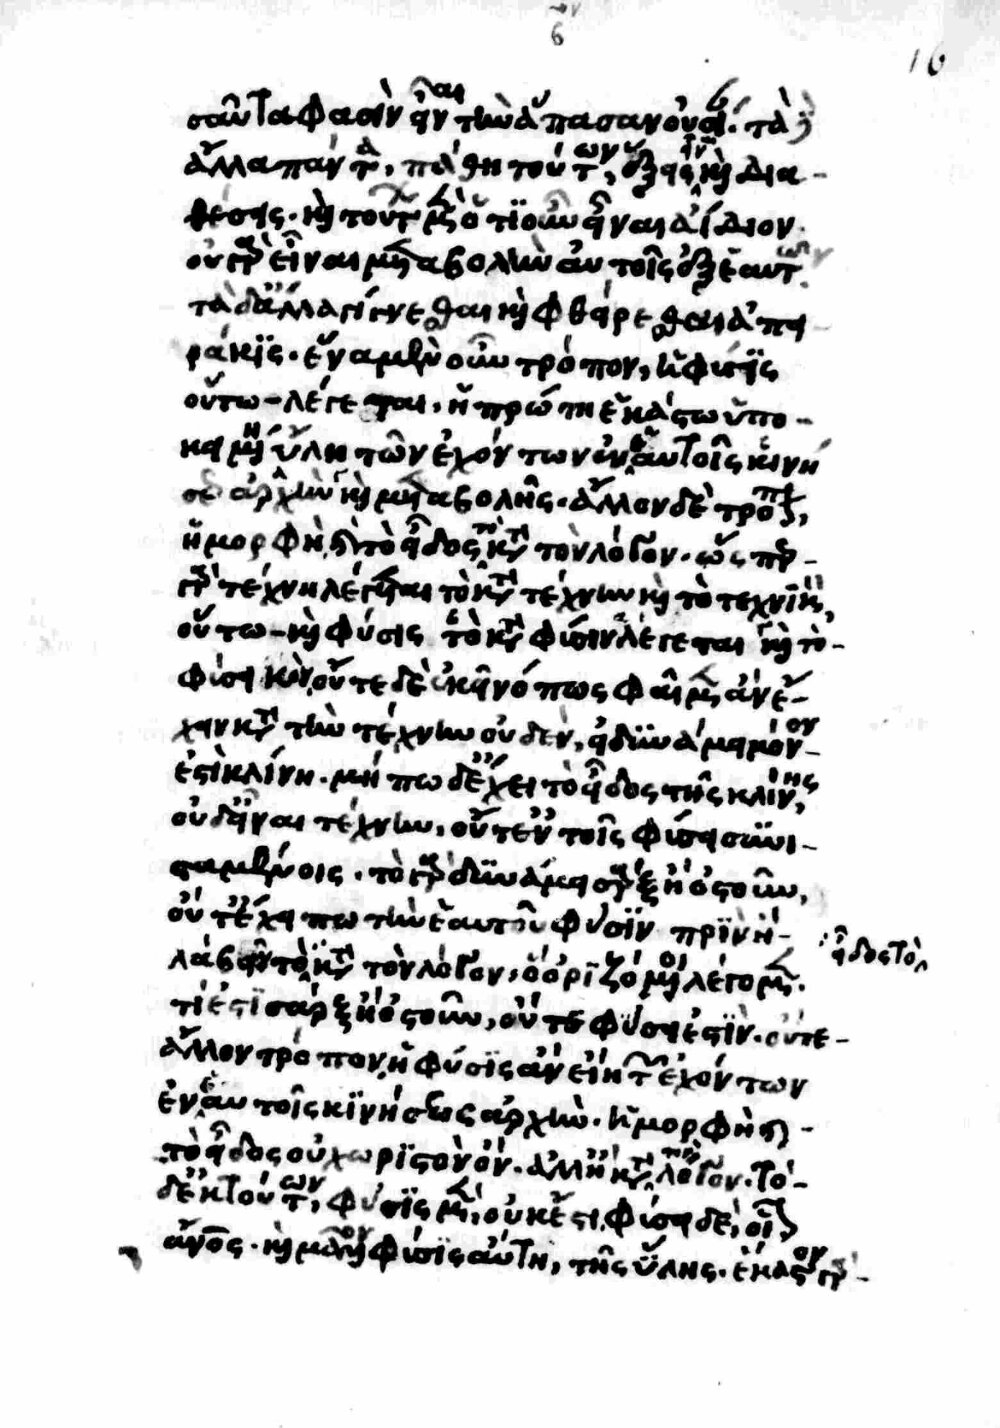 σαῦτα φασὶν εἶναι τὴν ἅπασαν οὐσί. τὰ δ
ἄλλα πάντα, πάθη τούτων, ἕξεις καὶ δια-
θέσεις. καὶ τούτων μὲν ὁτιοῦν εἶναι ἀΐδιον.
οὐ γὰρ εἶναι μεταβολὴν αὐτοῖς ἐξ ἑαυτῶν.
τὰ δ' ἄλλα γίγνεσθαι καὶ φθείρεσθαι ἀπει-
ράκις. ἕνα μὲν οὖν τρόπον, ἡ φύσις
οὕτω λέγεται, ἡ πρώτη ἑκάστω ὑπο-
κειμένη ὕλη τῶν ἐχόντων ἐν ἑαυτοῖς κινή
σε ἀρχὴν καὶ μεταβολῆς. ἄλλον δὲ τρόπον,
ἡ μορφὴ καὶ τὸ εἶδος τὸ κατὰ τὸν λόγον. ὥσπερ
γὰρ τέχνη λέγεται τὸ κατὰ τέχνην καὶ τὸ τεχνικόν,
οὕτω καὶ φύσις τὸ κατὰ φύσιν λέγεται καὶ τὸ
φυσικόν, οὔτε δὲ ἐκεῖνό πως φαῖμεν ἂν ἔ-
χειν κατὰ τὴν τέχνην οὐδὲν, εἰ δυνάμει μόνον
ἐστὶ κλίνη. μή πω δ' ἔχει τὸ εἶδος τῆς κλίνης,
οὐδ' εἶναι τέχνην, οὔτ' ἐν τοῖς φύσει συνι-
σταμένοις. τὸ γὰρ δυνάμει σὰρξ ἢ ὀστοῦν,
οὔτ' ἔχει πω τὴν ἑαυτοῦ φύσιν πρὶν ἢ
λάβῃ τὸ κατὰ τὸν λόγον, ὃ ὁριζόμενοι λέγομεν
εἶδος τὸ
τί ἐστι σὰρξ ἢ ὀστοῦν, οὔτε φύσει ἐστίν. ὥστε
ἄλλον τρόπον, ἡ φύσις ἂν εἴη τῶν ἐχόντων
ἐν ἑαυτοῖς κινήσεως ἀρχὴν. ἡ μορφὴ καὶ
τὸ εἶδος οὐ χωριστὸν ὄν. ἀλλ' ἢ κατὰ τὸν λόγον. τὸ
δ' ἐκ τούτων, φύσις μὲν, οὐκ ἔστι, φύσει δὲ, οἷον
ἄνος. καὶ μᾶλλον φύσις αὕτη, τῆς ὕλης. ἕκαστον γὰρ